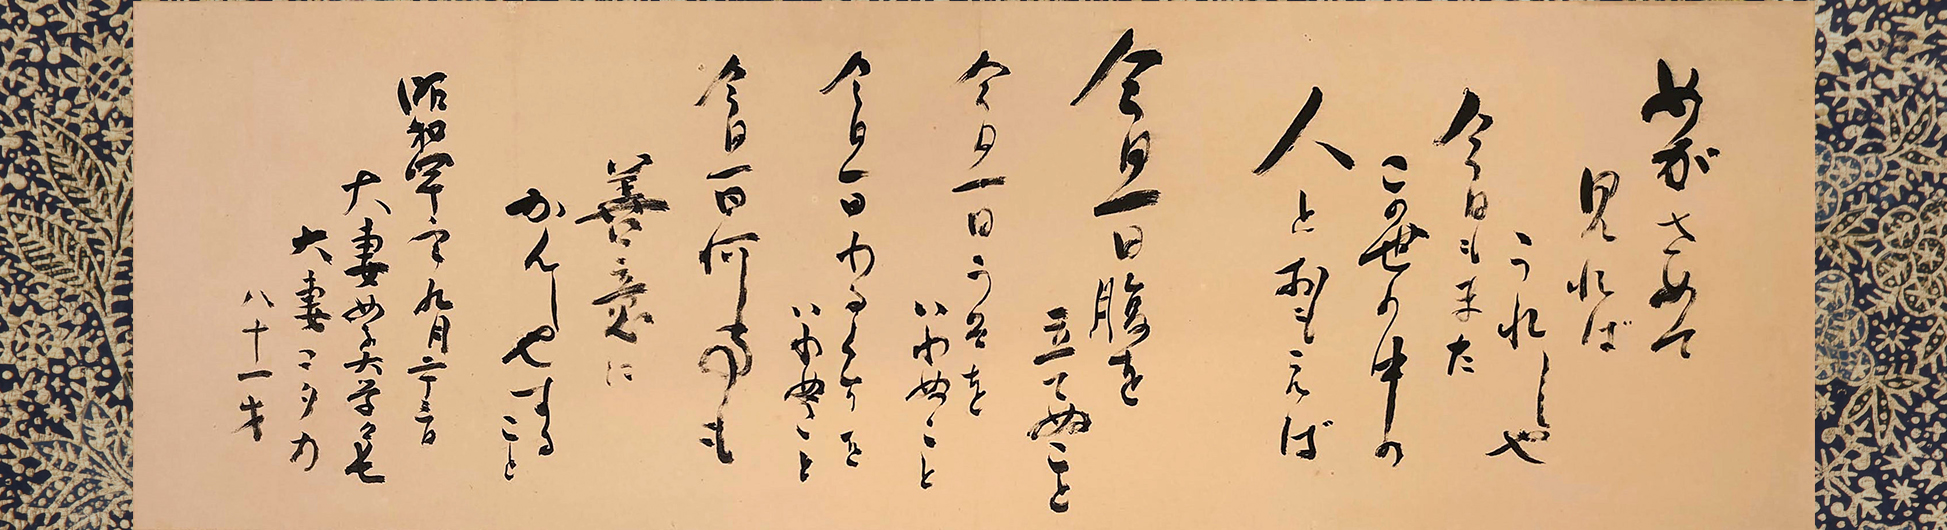 めがさめて
見れば
うれしや
今日もまた
この世の中の
人とおもえば
今日一日腹を
立てぬこと
今日一日うそを
いわぬこと
今日一日わるくちを
いわぬこと
今日一日何事も
善意に
かんしやすること
昭和四十年九月二十三日
大妻女子大学々長
大妻コタカ
八十一才